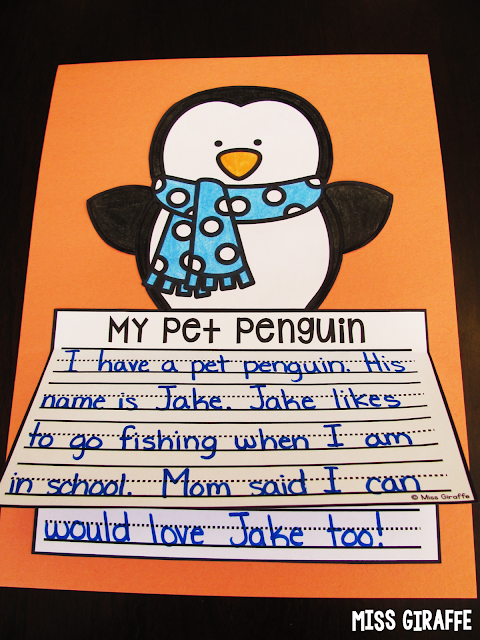 MISS GIRAFFE
My Pet Penguin
I have a pet penguin. His
name is Jake. Jake likes
to go fishing when I am
in school. Mom said I can
© Miss Giraffe
would love Jake too!
MISS GIRAFFE